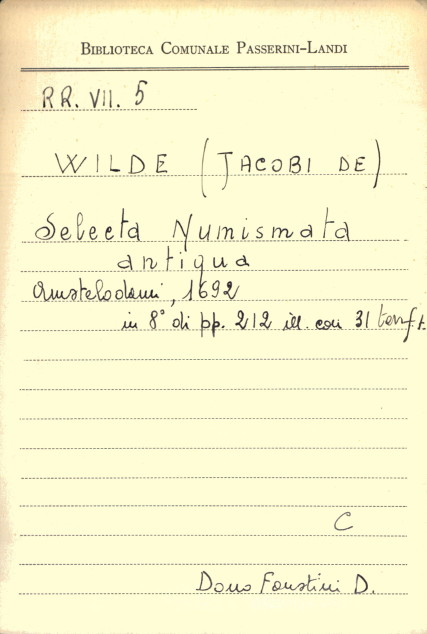 BIBLIOTECA COMUNALE PASSERINI-LANDI
RR. VII. 5
WILDE (JACOBI DE)
Selecta Numismata
antiqua
Amstelodami, 1692
in 8° di pp. 212 ill. con 31 tav. f. t.
C
Dono Faustini D.